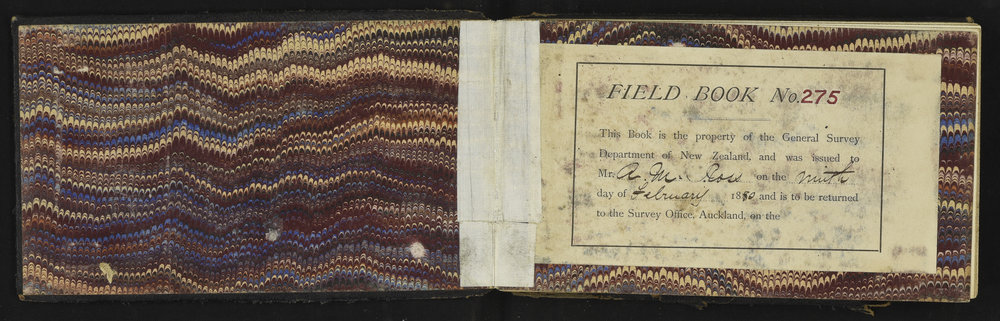 FIELD BOOK No. 275
This Book is the property of the General Survey
Department of New Zealand, and was issued to
Mr. A. M. Ross on the ninth
day of February 1880 and is to be returned
to the Survey Office, Auckland, on the